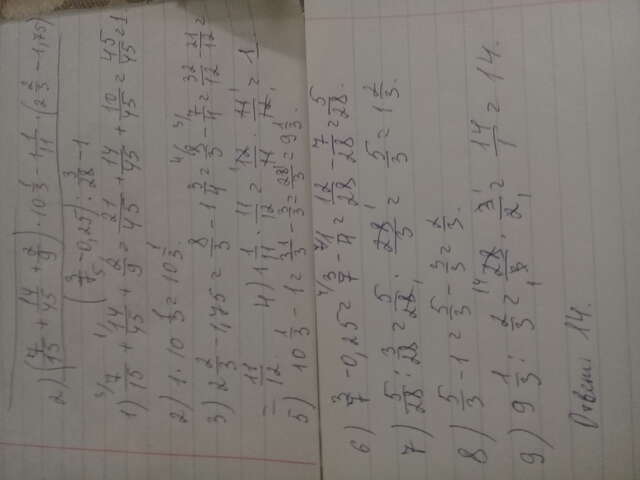 2) (7/15 + 14/45 + 2/9) · 10 1/3 - 1 1/11 · (2 2/3 - 1,75)
(3/7 - 0,25) : 3/28 - 1
1) 7/15 + 14/45 + 2/9 = 21/45 + 14/45 + 10/45 = 45/45 = 1
2) 1 · 10 1/3 = 10 1/3.
3) 2 2/3 - 1,75 = 8/3 - 1 3/4 = 8/3 - 7/4 = 32/12 - 21/12 =
= 11/12. 4) 1 1/11 · 11/12 = 12/11 · 11/12 = 1
5) 10 1/3 - 1 = 31/3 - 3/3 = 28/3 = 9 1/3.
6) 3/7 - 0,25 = 3/7 - 1/4 = 12/28 - 7/28 = 5/28.
7) 5/28 : 3/28 = 5/28 · 28/3 = 5/3 = 1 2/3.
8) 5/3 - 1 = 5/3 - 3/3 = 2/3.
9) 9 1/3 : 2/3 = 28/3 · 3/2 = 14/1 = 14.
Ответ: 14.